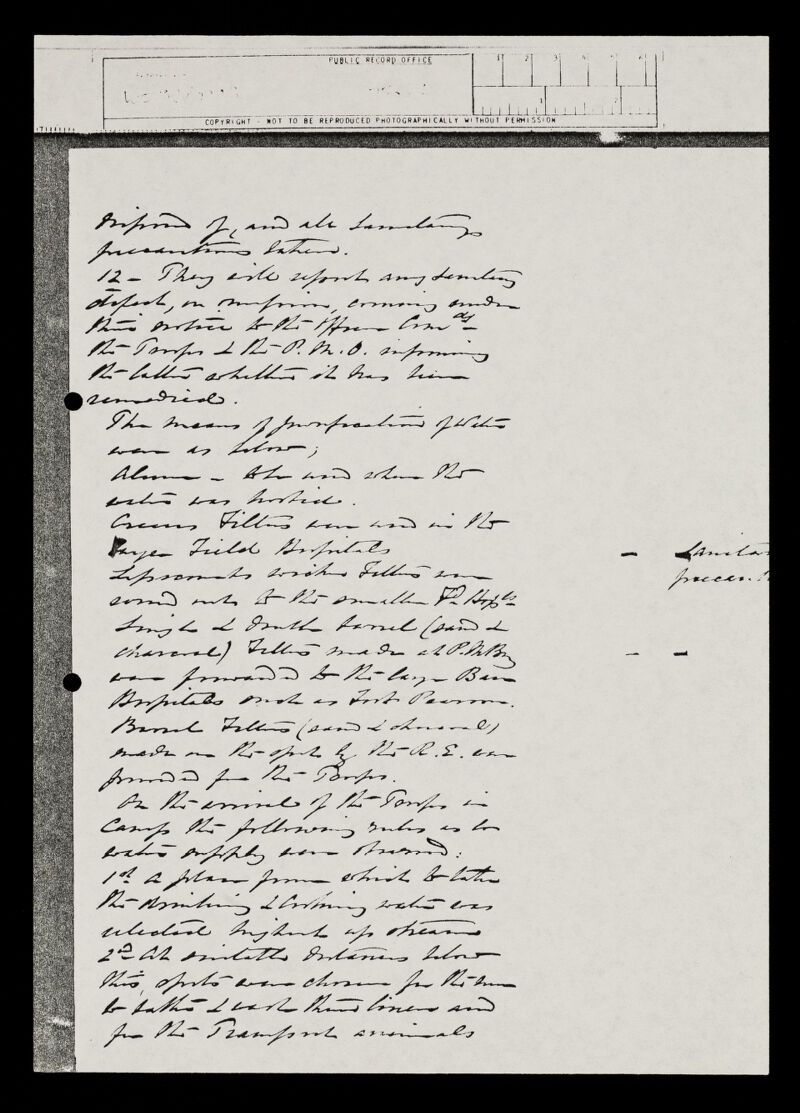 PUBLIC RECORD OFFICE
1 2 3 4 5 6
1 2
COPYRIGHT - NOT TO BE REPRODUCED PHOTOGRAPHICALLY WITHOUT PERMISSION
disposed of, and all sanitary
precautions taken.
12 - They will report any sanitary
defect, or nuisance, coming under
their notice to the Officer Comdg
the Troops & the P.M.O. informing
the latter whether it has been
remedied.
The means of purification of Water
were as below;
Alum - to be used when the
water was turbid.
Crease Filters were used in the
large Field Hospitals
Lipscombs wicker Filters were
sent to the smaller Fd Hospls
Single & double barrel (sand &
charcoal) Filters made at P.M.Bg
were forwarded to the large Base
Hospitals such as Fort Pearson.
Barrel Filters (sand & charcoal)
made on the spot by the R.E. were
provided for the Troops.
On the arrival of the Troops in
Camp the following rules as to
water supply were observed:
1st a place from which to take
the drinking & cooking water was
selected highest up stream
2nd At suitable distances below
this, spots were chosen for the men
to bathe & wash their linen and
for the Transport animals
- Sanita
precau
- -